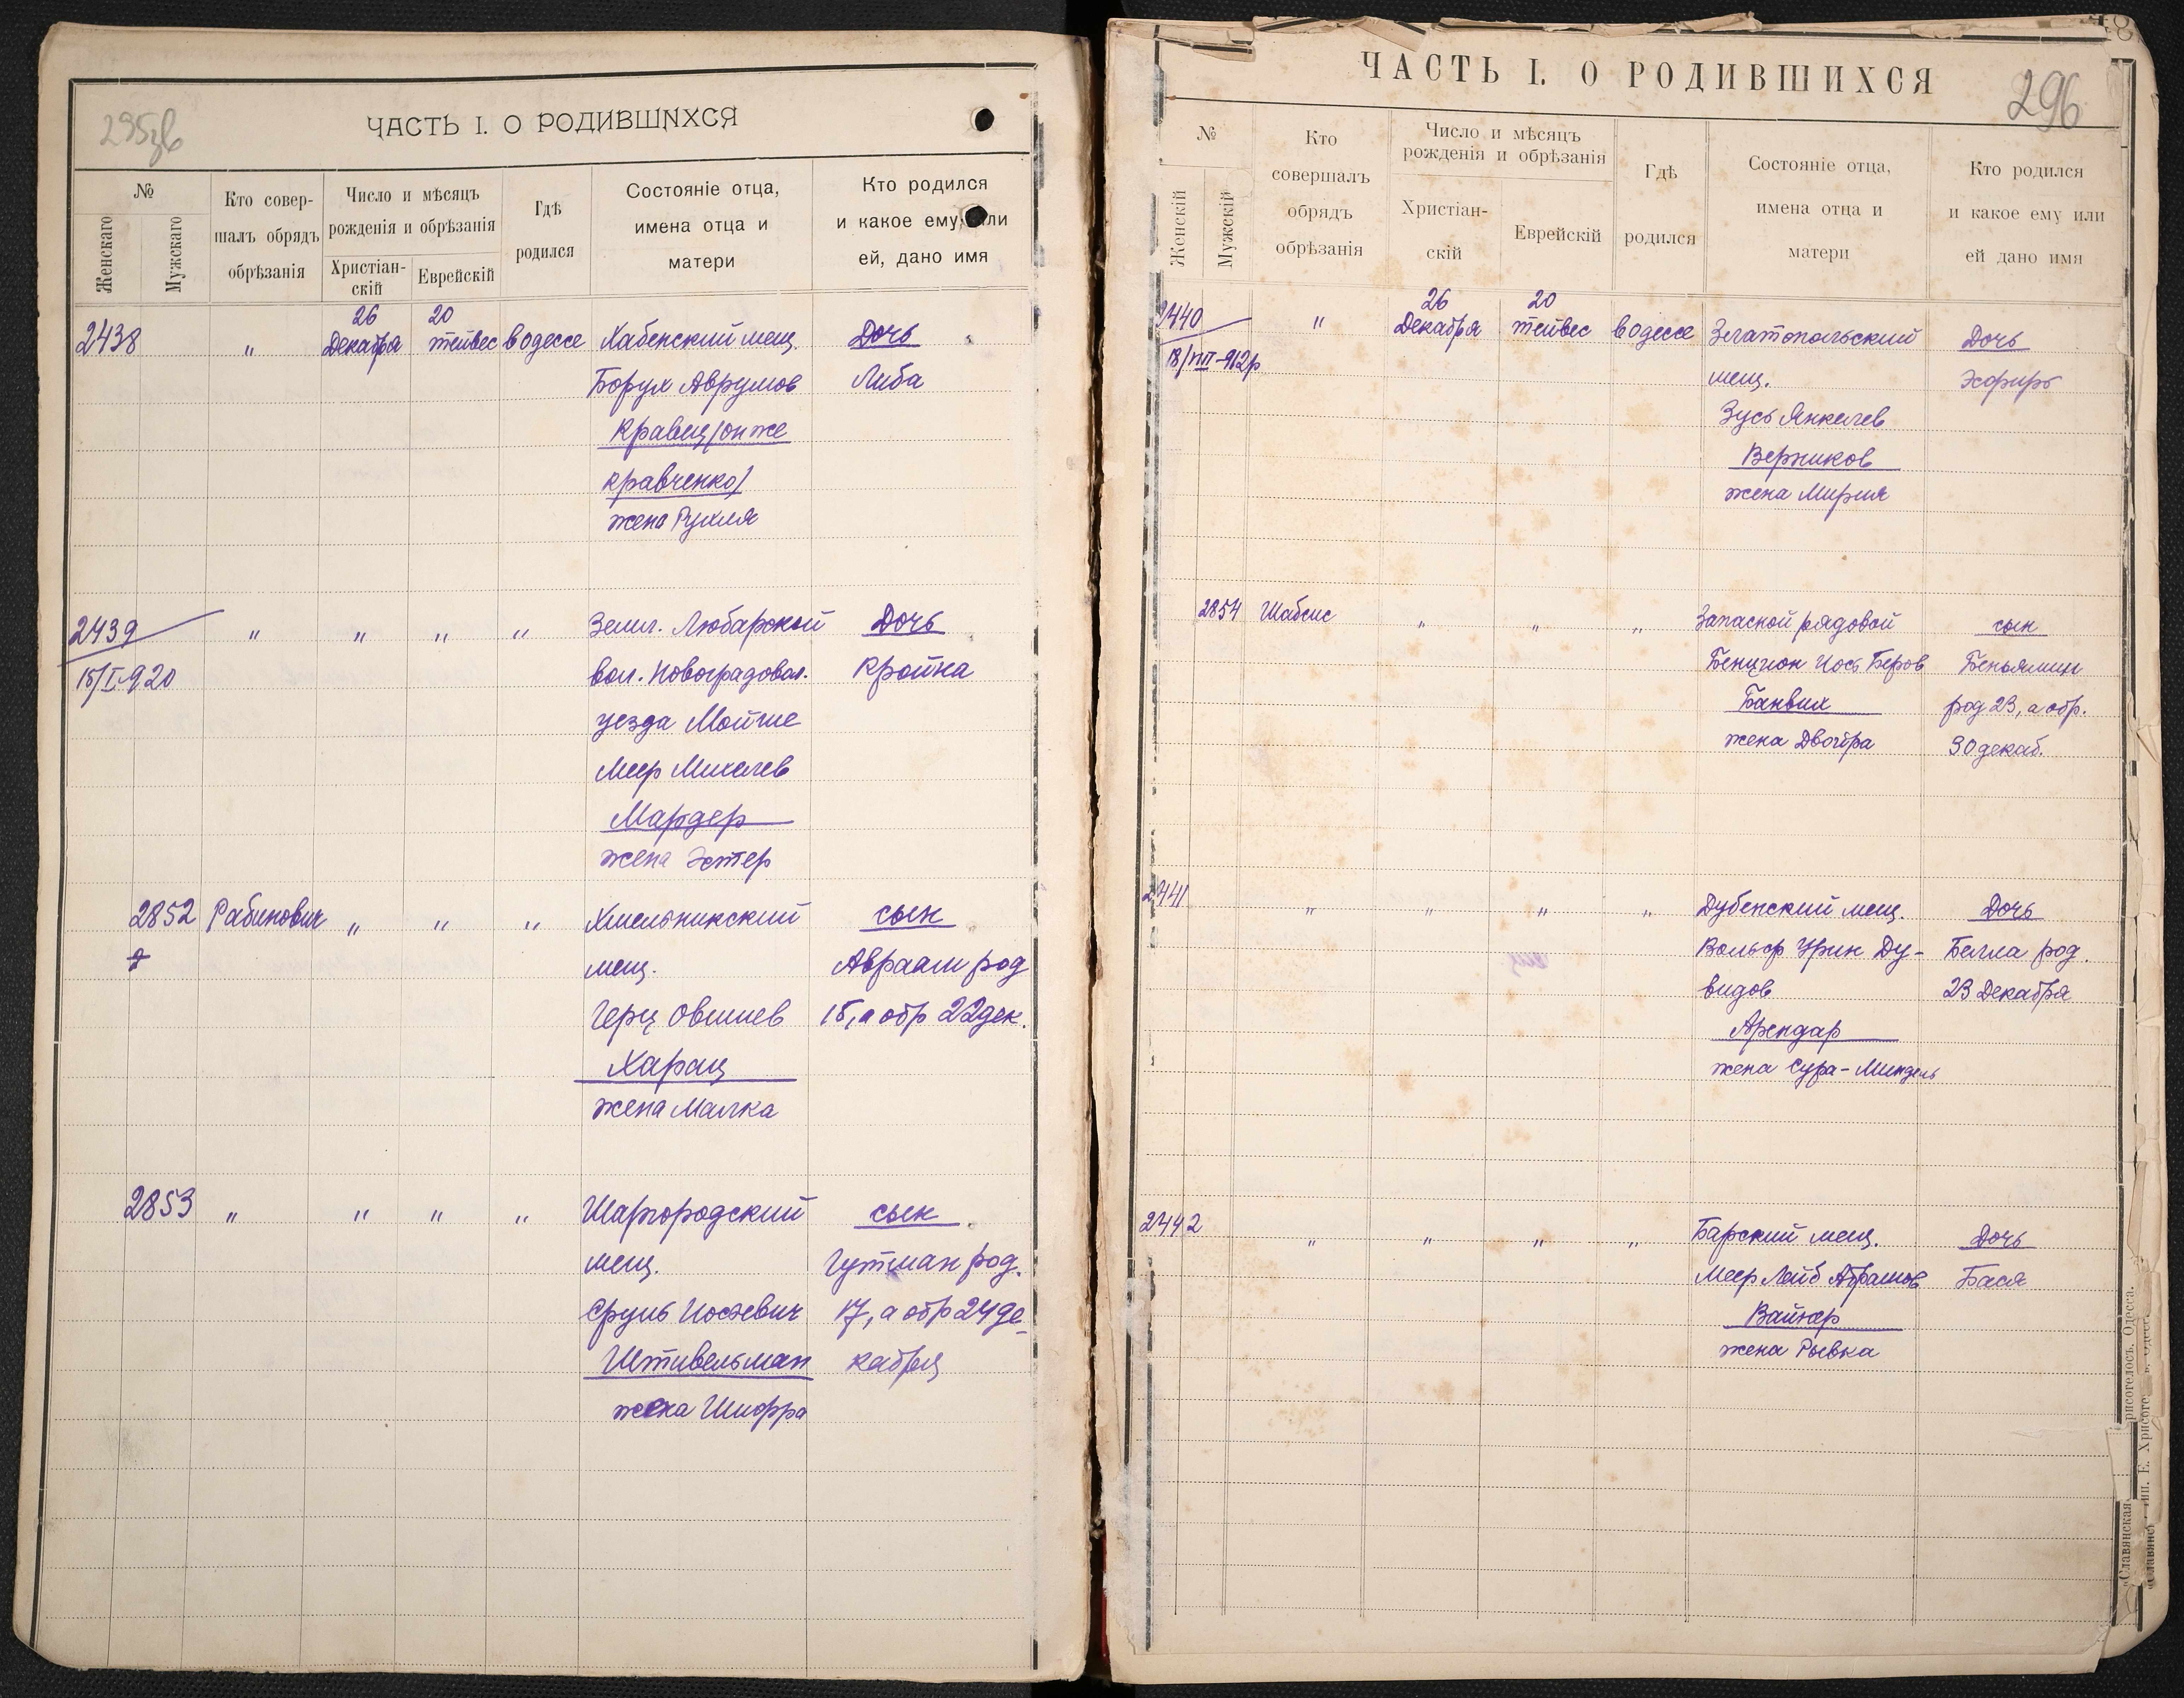 295зв
ЧАСТЬ I. О РОДИВШИХСЯ
№
Женскаго
Мужскаго
Кто совер-
шалъ обрядъ
обрѣзанія
Число и мѣсяцъ
рожденія и обрѣзанія
Христіан-
скій
Еврейскій
Гдѣ
родился
Состояніе отца,
имена отца и
матери
Кто родился
и какое ему, или
ей, дано имя
2438 " 26 Декабря 20 тейвес в одессе Хабенский мещ. Дочь
Борух Аврумов Либа
Кравец /он же
Кравченко/
жена Рухля
2439 " " " " Земл. Любарской Дочь
15/I-920 вол. Новоградвол. Кройна
уезда Мойше
Меер Михелев
Мардер
жена Эстер
2852 Рабинович " " " Хмельникский сын
мещ. Авраам род
Герц Овшиев 15, а обр 22 дек.
Харац
жена Малка
2853 " " " " Шаргородский сын
мещ. Гутман род.
Сруль Иосевич 17, а обр 24 де-
Штивельман кабря
жена Шифра
296
ЧАСТЬ I. О РОДИВШИХСЯ
№
Женскій
Мужскій
Кто
совершалъ
обрядъ
обрѣзанія
Число и мѣсяцъ
рожденія и обрѣзанія
Христіан-
скій
Еврейскій
Гдѣ
родился
Состояніе отца,
имена отца и
матери
Кто родился
и какое ему или
ей дано имя
2440 " 26 Декабря 20 тейвес в одессе Златопольский Дочь
18/VIII-962р мещ. Эсфирь
Зусь Янкелев
Верников
жена Мирия
2854 Шабсис " " " Запасной рядовой сын
Бенцион Иось Беров Беньямин
Банвих род 23, а обр.
жена Двойра 30 декаб.
2441 " " " " Дубенский мещ. Дочь
Вольф Урин Ду- Белла род.
видов 23 Декабря
Арендар
жена Сура-Миндель
2442 " " " " Барский мещ. Дочь
Меер Лейб Абрамов Бася
Вайнер
жена Рывка